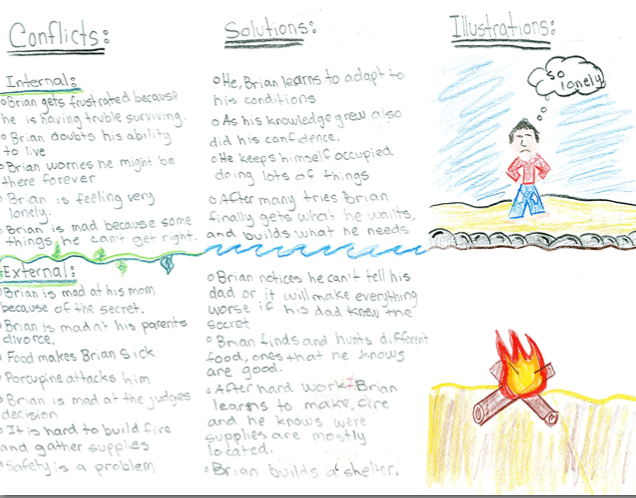 Conflicts:
Internal:
Brian gets frustrated because
he is having truble surviving.
Brian doubts his ability
to live
Brian worries he might be
there forever
Brian is feeling very
lonely.
Brian is mad because some
things he can't get right.
External:
Brian is mad at his mom
because of the secret.
Brian is mad at his parents
divorce.
Food makes Brian sick
Porcupine attacks him
Brian is mad at the judges
decision
It is hard to build fire
and gather supplies
Safety is a problem
Solutions:
He, Brian learns to adapt to
his conditions
As his knowledge grew also
did his confidence.
He keeps himself occupied
doing lots of things
After many tries Brian
finally gets what he wants,
and builds what he needs
Brian notices he can't tell his
dad or it will make everything
worse if his dad knew the
secret
Brian finds and hunts different
food, ones that he knows
are good.
After hard work Brian
learns to make fire
and he knows were
supplies are mostly
located.
Brian builds a shelter.
Illustrations:
so
lonely